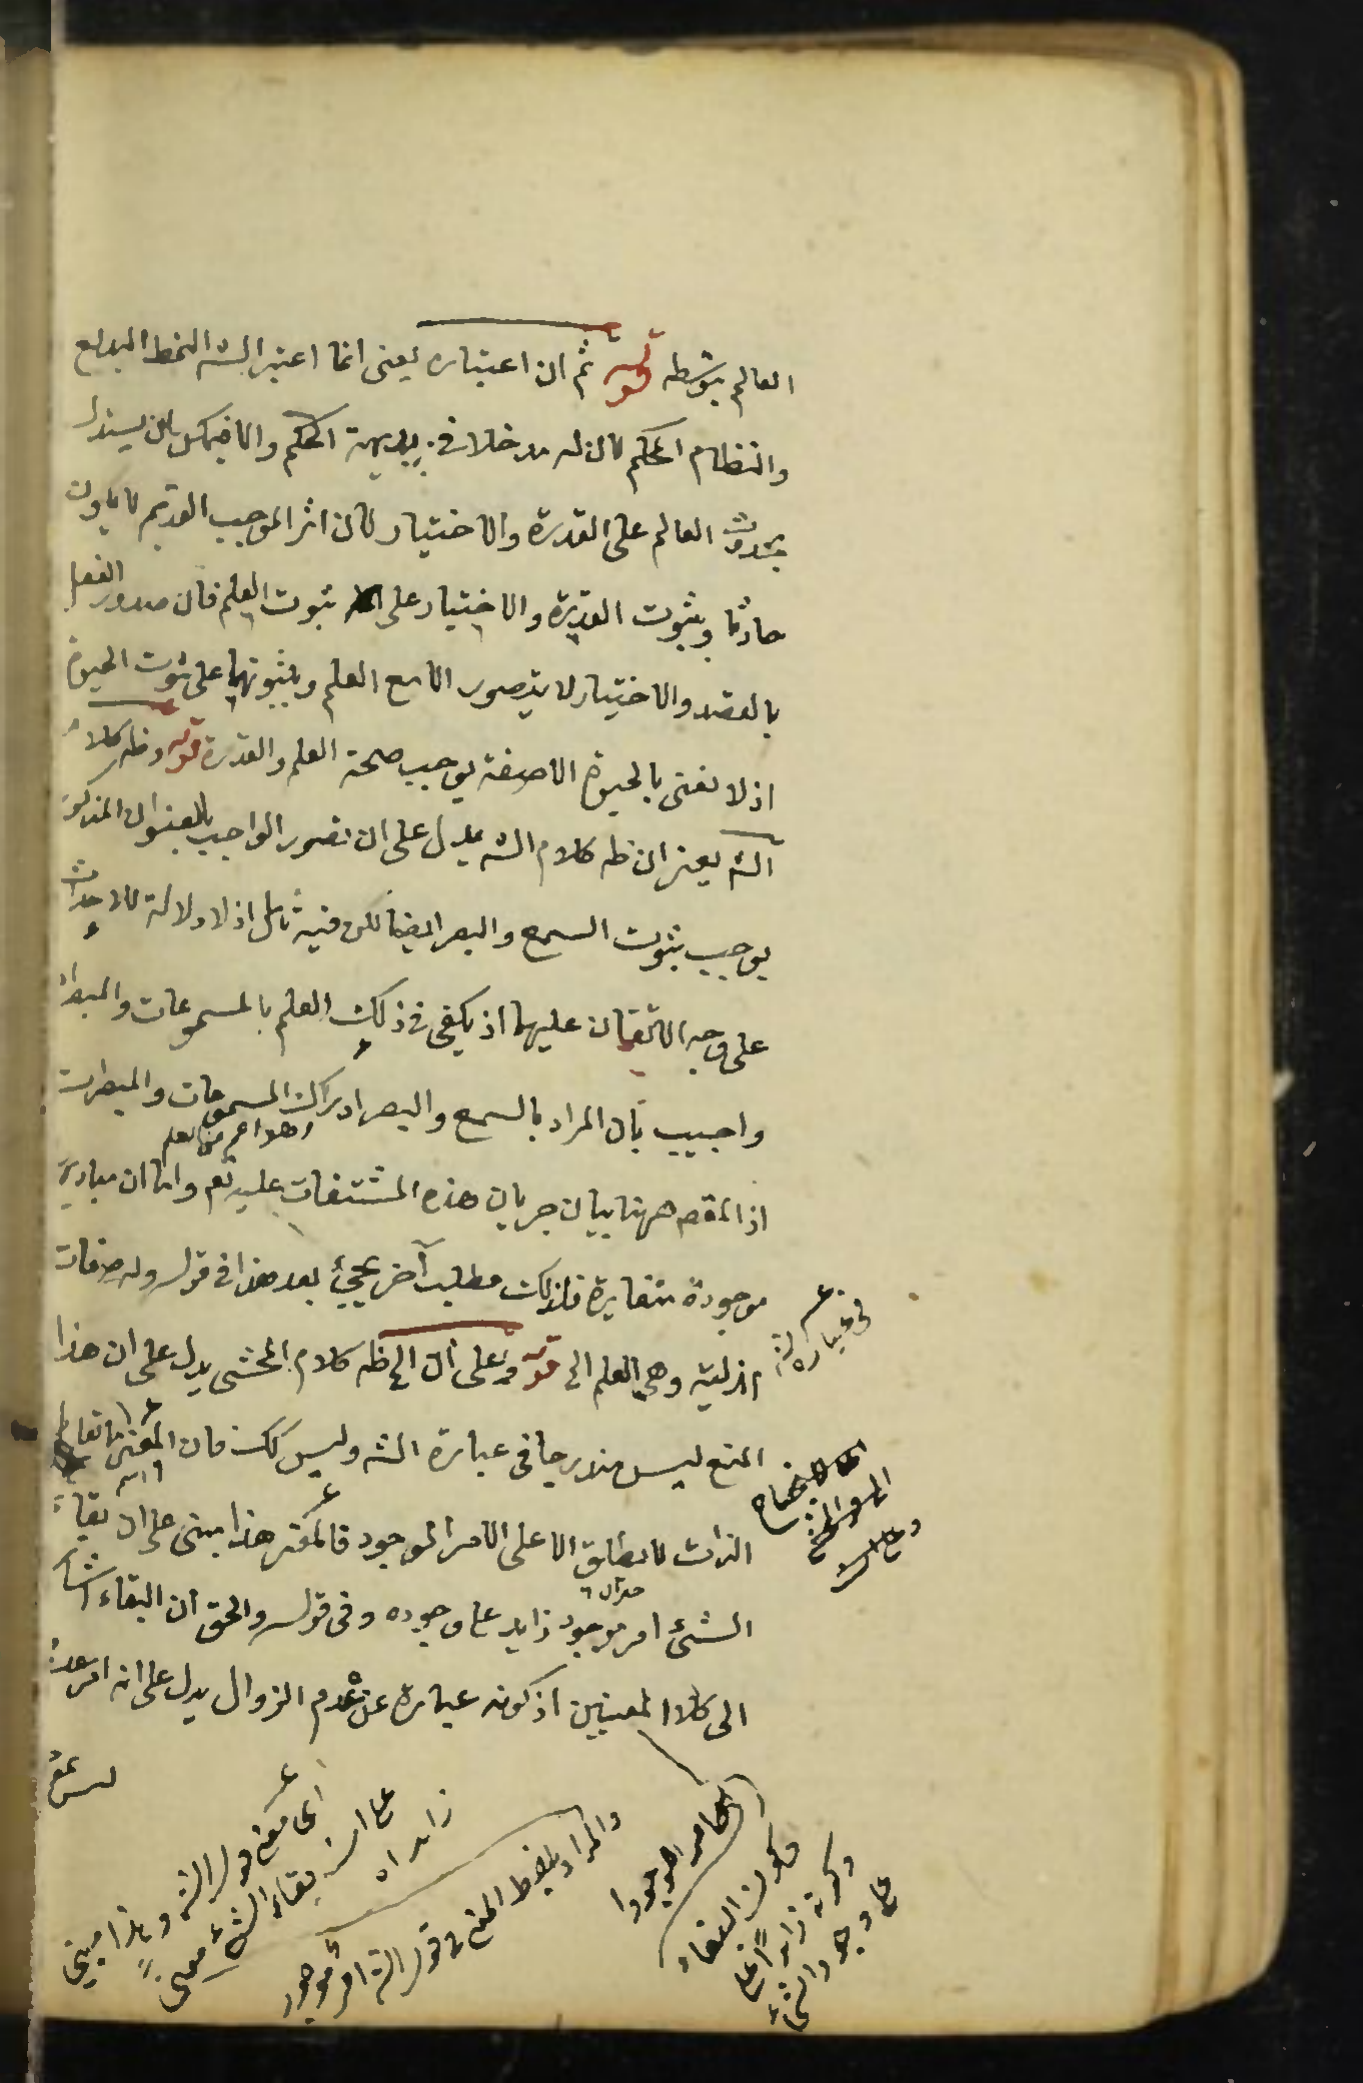 العالم بتوسطه قوله ثم ان اعتباره يعنى انما اعتبر الشه النمط البديع
والنظام المحكم لان له مدخلا فى بديهة الحكم والا فيمكن بان يستدل
بحدوث العالم على القدرة والاختيار لان اثر الموجب القديم لا يكون
حادثا وبثبوت القدرة والاختيار على ثبوت العلم فان صدور الفعل
بالقصد والاختيار لا يتصور الا مع العلم وبثبوتهما على ثبوت الحيوة
اذ لا نعنى بالحيوة الا صفة يوجب صحة العلم والقدرة قوله وظه كلام
الشه يعنى ان ظه كلام الشه يدل على ان تصور الواجب بالعنوان المذكور
يوجب ثبوت السمع والبصر ايضا لكن فيه تامل اذ لا دلالة للاحداث
على وجه الاتقان عليهما اذ يكفى فى ذلك العلم بالمسموعات والمبصرات
واجيب بان المراد بالسمع والبصر ادراك المسموعات والمبصرات
وهو اعم من العلم
اذ المقصه ههنا بيان جريان هذه المشتقات عليه تع واما ان مباديه
موجودة متغايرة فلذلك مطلب آخر يجيئ بعد هذا فى قوله وله صفات
ازلية وهى العلم الى قوله وعلى ان الخ ظه كلام المحشى يدل على ان هذا
فى عبارة الشه
المنع ليس مندرجا فى عبارة الشه وليس كك فان المعنى
الذات لا يطلق الا على الامر الموجود فالمعنى هذا مبنى على ان بقاء
الشئ امر موجود زايد على وجوده وفى قوله والحق ان البقاء اشارة
الى كلا المعنيين اذ كونه عبارة عن عدم الزوال يدل على انه امر عدمى
اى معنى قول الشه وهذا مبنى
على ان بقاء الشئ معنى
زايد اه
والمراد بلفظ المعنى فى قول الشه امر موجود
وكون البقاء
امرا موجودا
وكونه زايدا على
على وجود الشئ